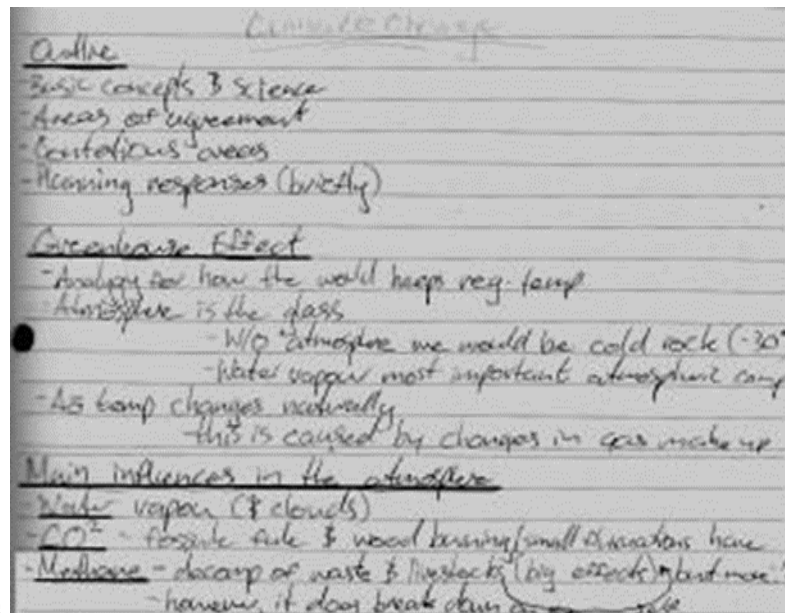 Climate Change
Outline
-Basic concepts & Science
-Areas of agreement
-Contentious areas
-Planning responses (briefly)
Greenhouse Effect
-Analogy for how the world keeps reg. temp
-Atmosphere is the glass
-W/O atmosphere we would be cold rock (-30°
-Water vapour most important atmospheric comp
-As temp changes naturally
this is caused by changes in gas make up
Main influences in the atmosphere
-Water vapour (& clouds)
-CO² - fossile fule & wood burning/small variations have
-Methane - decomp of waste & livestocks (big effects) but more
-however, it does break down